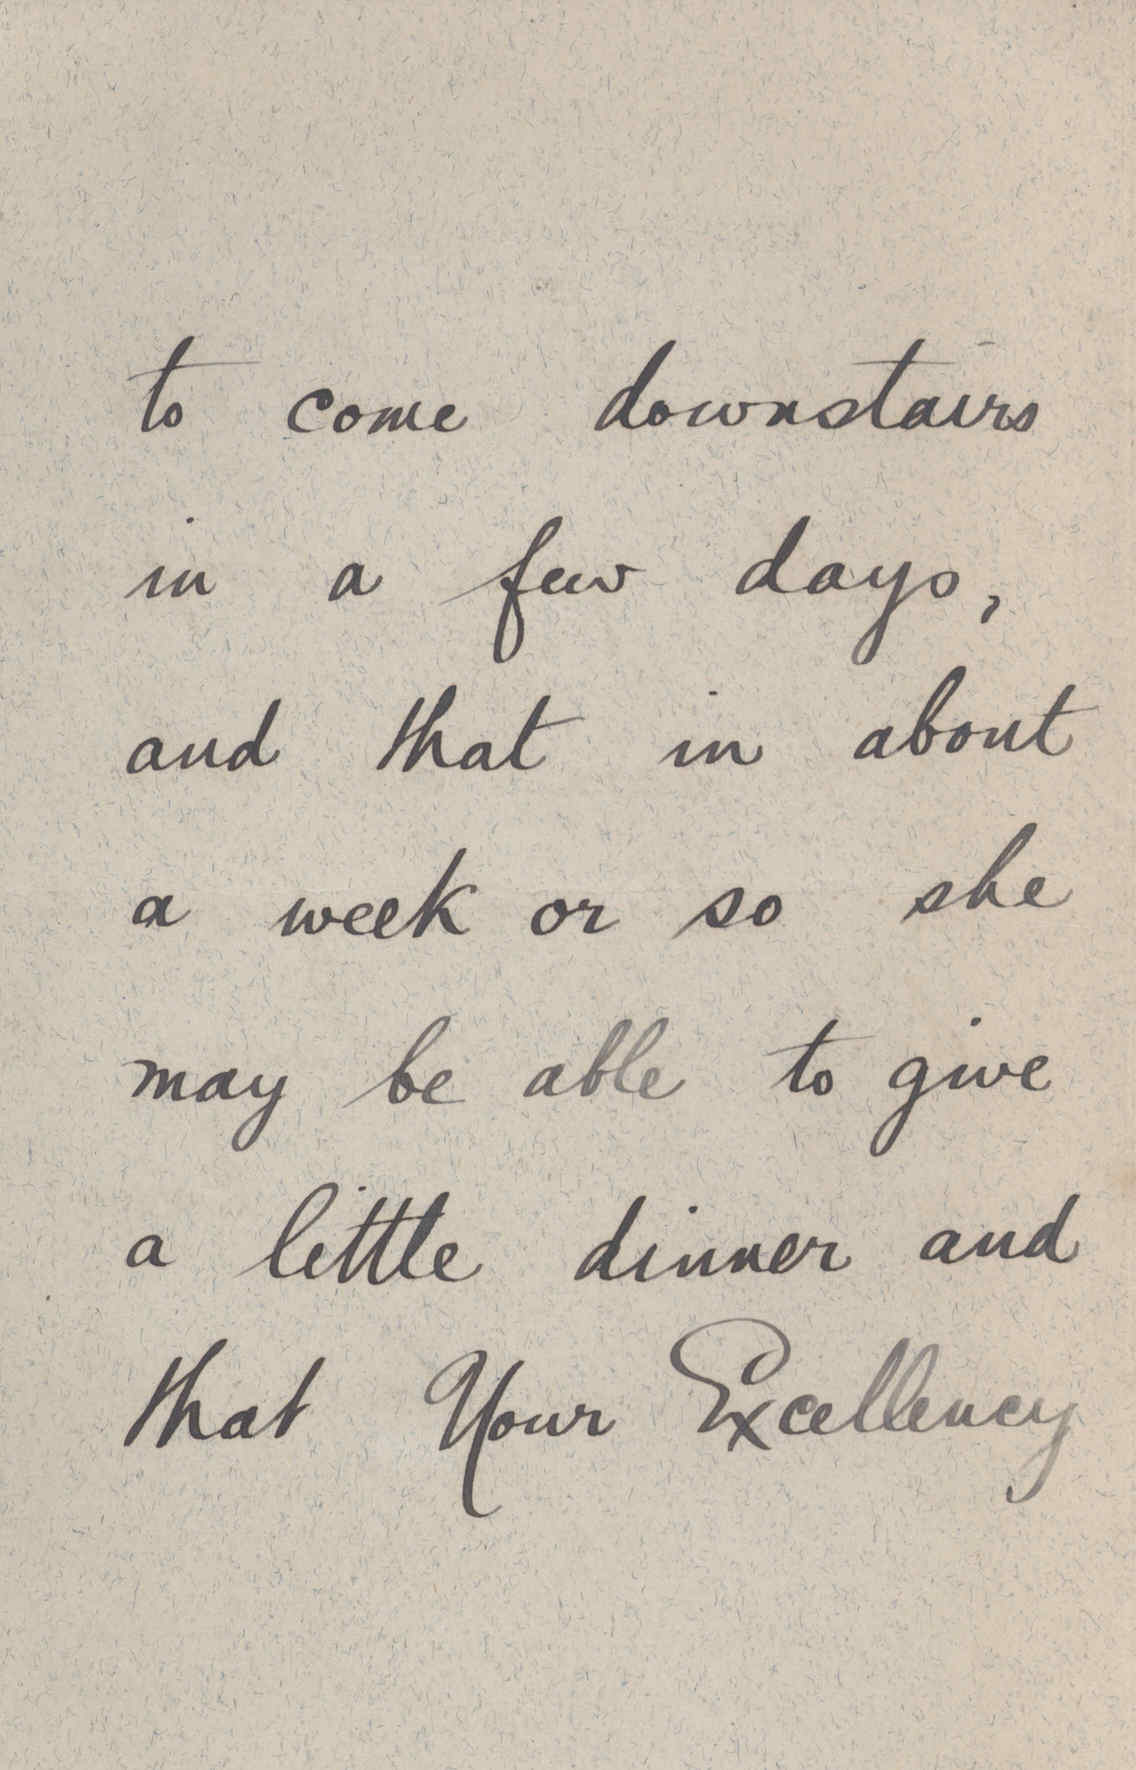 to come downstairs
in a few days,
and that in about
a week or so she
may be able to give
a little dinner and
that Your Excellency